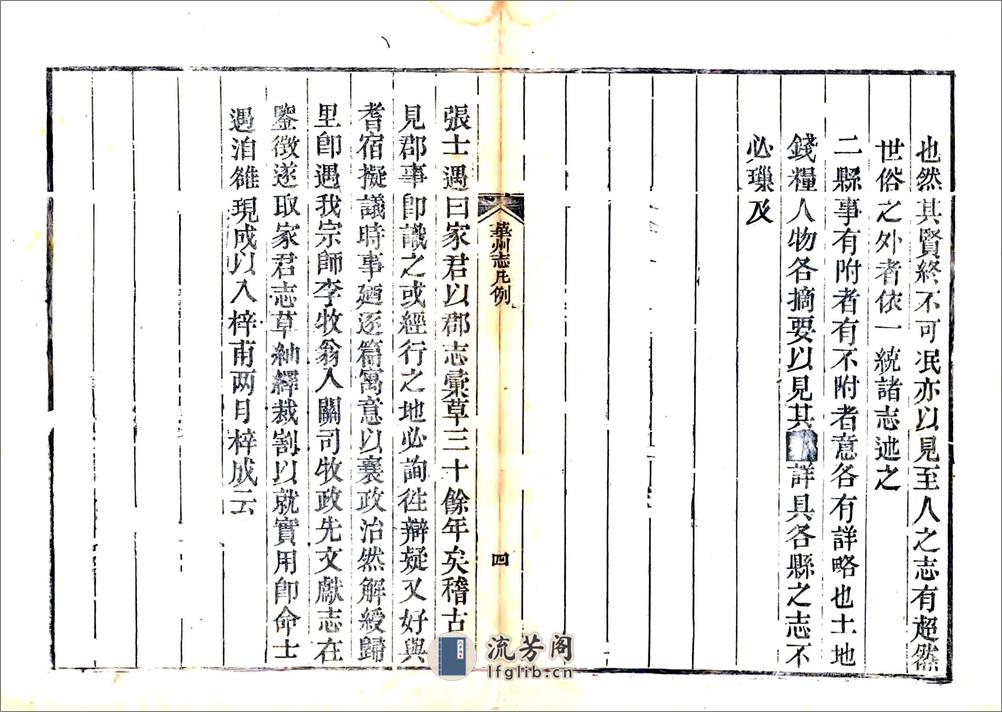 也然其賢終不可冺亦以見至人之志有超然
世俗之外者依一統諸志述之
二縣事有附者有不附者意各有詳略也土地
錢糧人物各摘要以見其 詳具各縣之志不
必璅及
華州志凡例
四
張士遇曰家君以郡志彚草三十餘年矣稽古
見郡事卽識之或經行之地必詢徃辯疑又好與
耆宿擬議時事廼逐篇寓意以襄政治然解綬歸
里卽遇我宗師李牧翁入關司牧政先文獻志在
鑒徵遂取家君志草紬繹裁割以就實用卽命士
遇洎雒現成以入梓甫两月梓成云
流芳阁
lfglib.cn